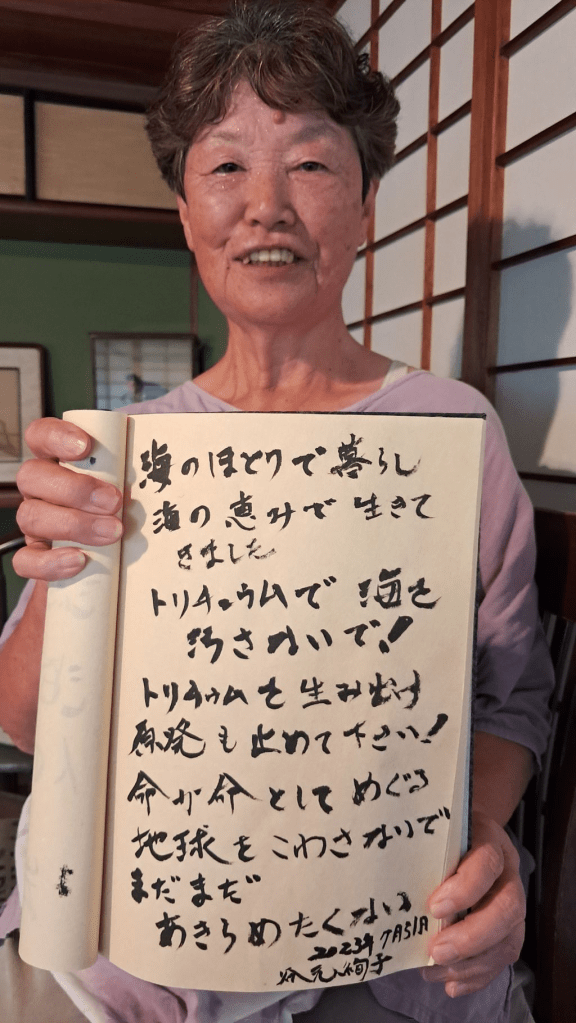 海のほとりで暮らし
海の恵みで生きて
きました
トリチュウムで海を
汚さないで!
トリチュウムを生み出す
原発も止めて下さい!
命が命としてめぐる
地球をこわさないで
まだまだ
あきらめたくない
2023年7月31日
元絢子